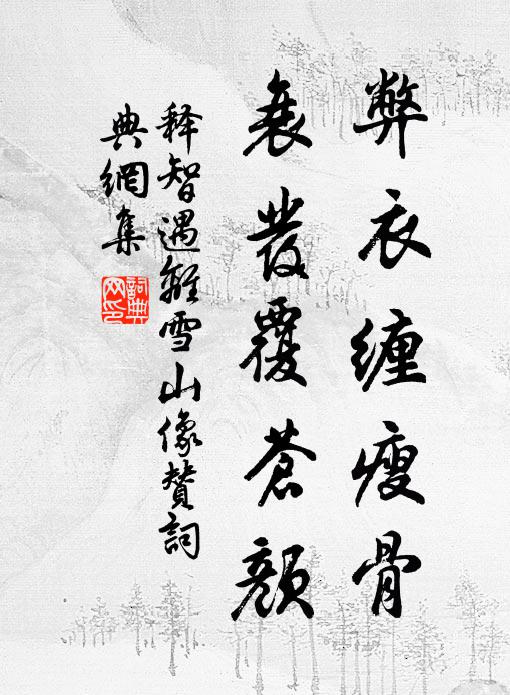 弊衣缠瘦骨
衰发覆苍颜
释智遇离雪山像赞词
典網集
詞典網印